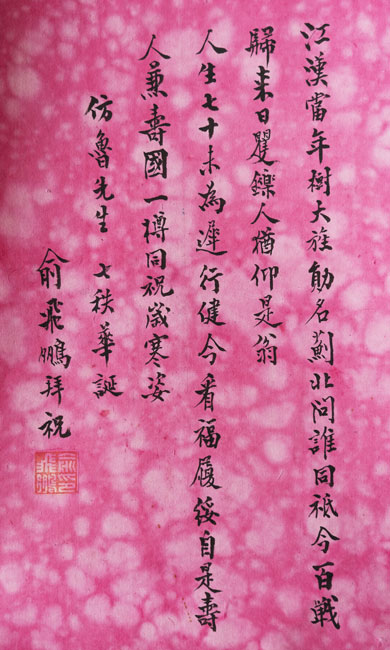 江漢當年樹大旌勛名薊北問誰同祗今百戰
歸來日矍鑠人猶仰是翁
人生七十未為遲行健今看福履綏自是壽
人兼壽國一樽同祝歲寒姿
仿魯先生 七秩華誕
俞飛鵬拜祝